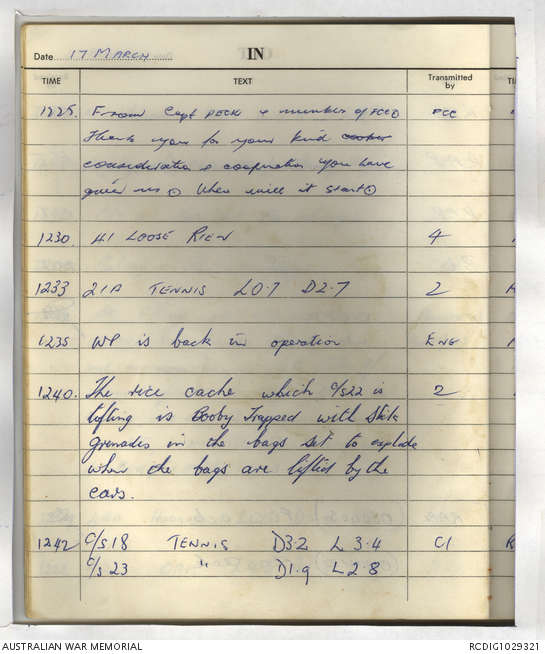 Date 17 MARCH IN
TIME TEXT Transmitted by TI
1225. From Capt PECK & member of FCC
Thank you for your kind
consideration & cooperation you have
given us . When will it start .
1230 41 LOOSE RIEN 4
1233 21A TENNIS L0.7 D2.7 2
1235 WP is back in operation ENG
1240. The rice cache which c/s22 is 2
lifting is Booby Trapped with Stick
grenades in the bags set to explode
when the bags are lifted by the
ears.
1242 C/S.18 TENNIS D3.2 L 3.4 C1
C/S 23 " D1.9 L 2.8
AUSTRALIAN WAR MEMORIAL RCDIG1029321